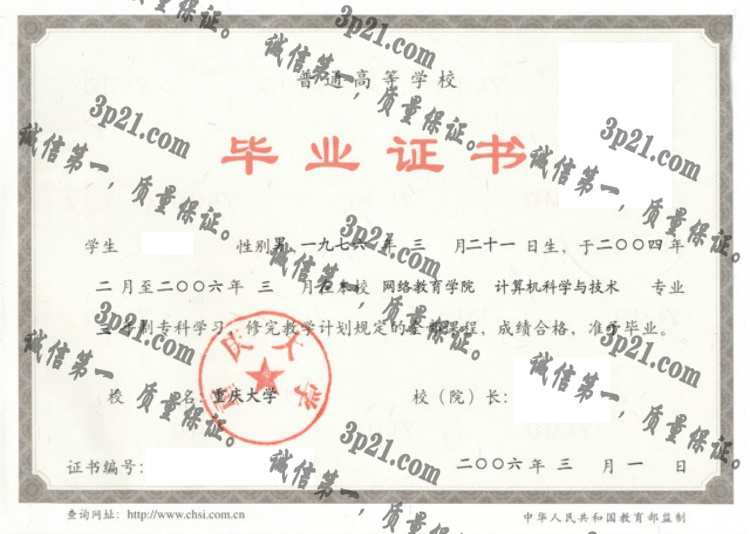 质量保证。
3p21.com
诚信第一,质量保证。
普通高等学校
3p21.com
3p21.com
诚信第一,质量保证。
毕业证书
诚信第一,质量保证。
3p21.com
学生 性别 男 一九七六 年 三 月二十一日生,于二〇〇四年
诚信第一,质量保证。
二月至二〇〇六年 三 月在本校 网络教育学院 计算机科学与技术 专业
三年制专科学习,修完教学计划规定的全部课程,成绩合格,准予毕业。
3p21.com
3p21.com
诚信第一,质量保证。
诚信第一,质量保证。
重庆大学
校 名:重庆大学 校(院)长:
3p21.com
诚信第一,质量保证。
证书编号: 二〇〇六年 三 月 一 日
查询网址:http://www.chsi.com.cn 中华人民共和国教育部监制